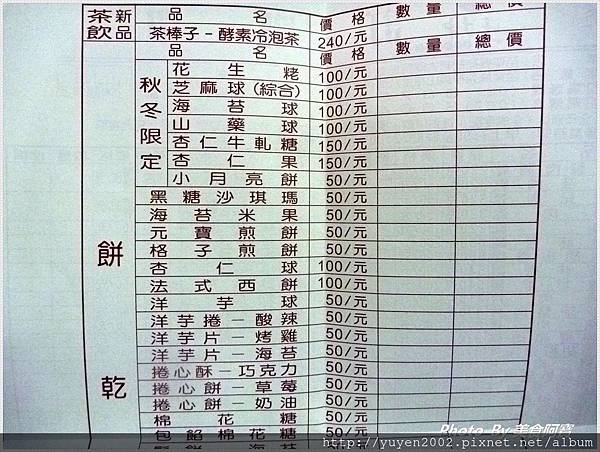 茶飲 新品 品名 價格 數量 總價
茶棒子－酵素冷泡茶 240/元
品名 價格 數量 總價
秋冬限定
花生粩 100/元
芝麻球(綜合) 100/元
海苔球 100/元
山藥球 100/元
杏仁牛軋糖 150/元
杏仁果 150/元
小月亮餅 50/元
餅乾
黑糖沙琪瑪 50/元
海苔米果 50/元
元寶煎餅 50/元
格子煎餅 50/元
杏仁球 100/元
法式西餅 100/元
洋芋球 50/元
洋芋捲－酸辣 50/元
洋芋片－烤雞 50/元
洋芋片－海苔 50/元
捲心酥－巧克力 50/元
捲心餅－草莓 50/元
捲心餅－奶油 50/元
棉花糖 50/元
包餡棉花糖 50/元
50/元
Photo By 美食阿寶
http://yuyen2002.pixnet.net/album